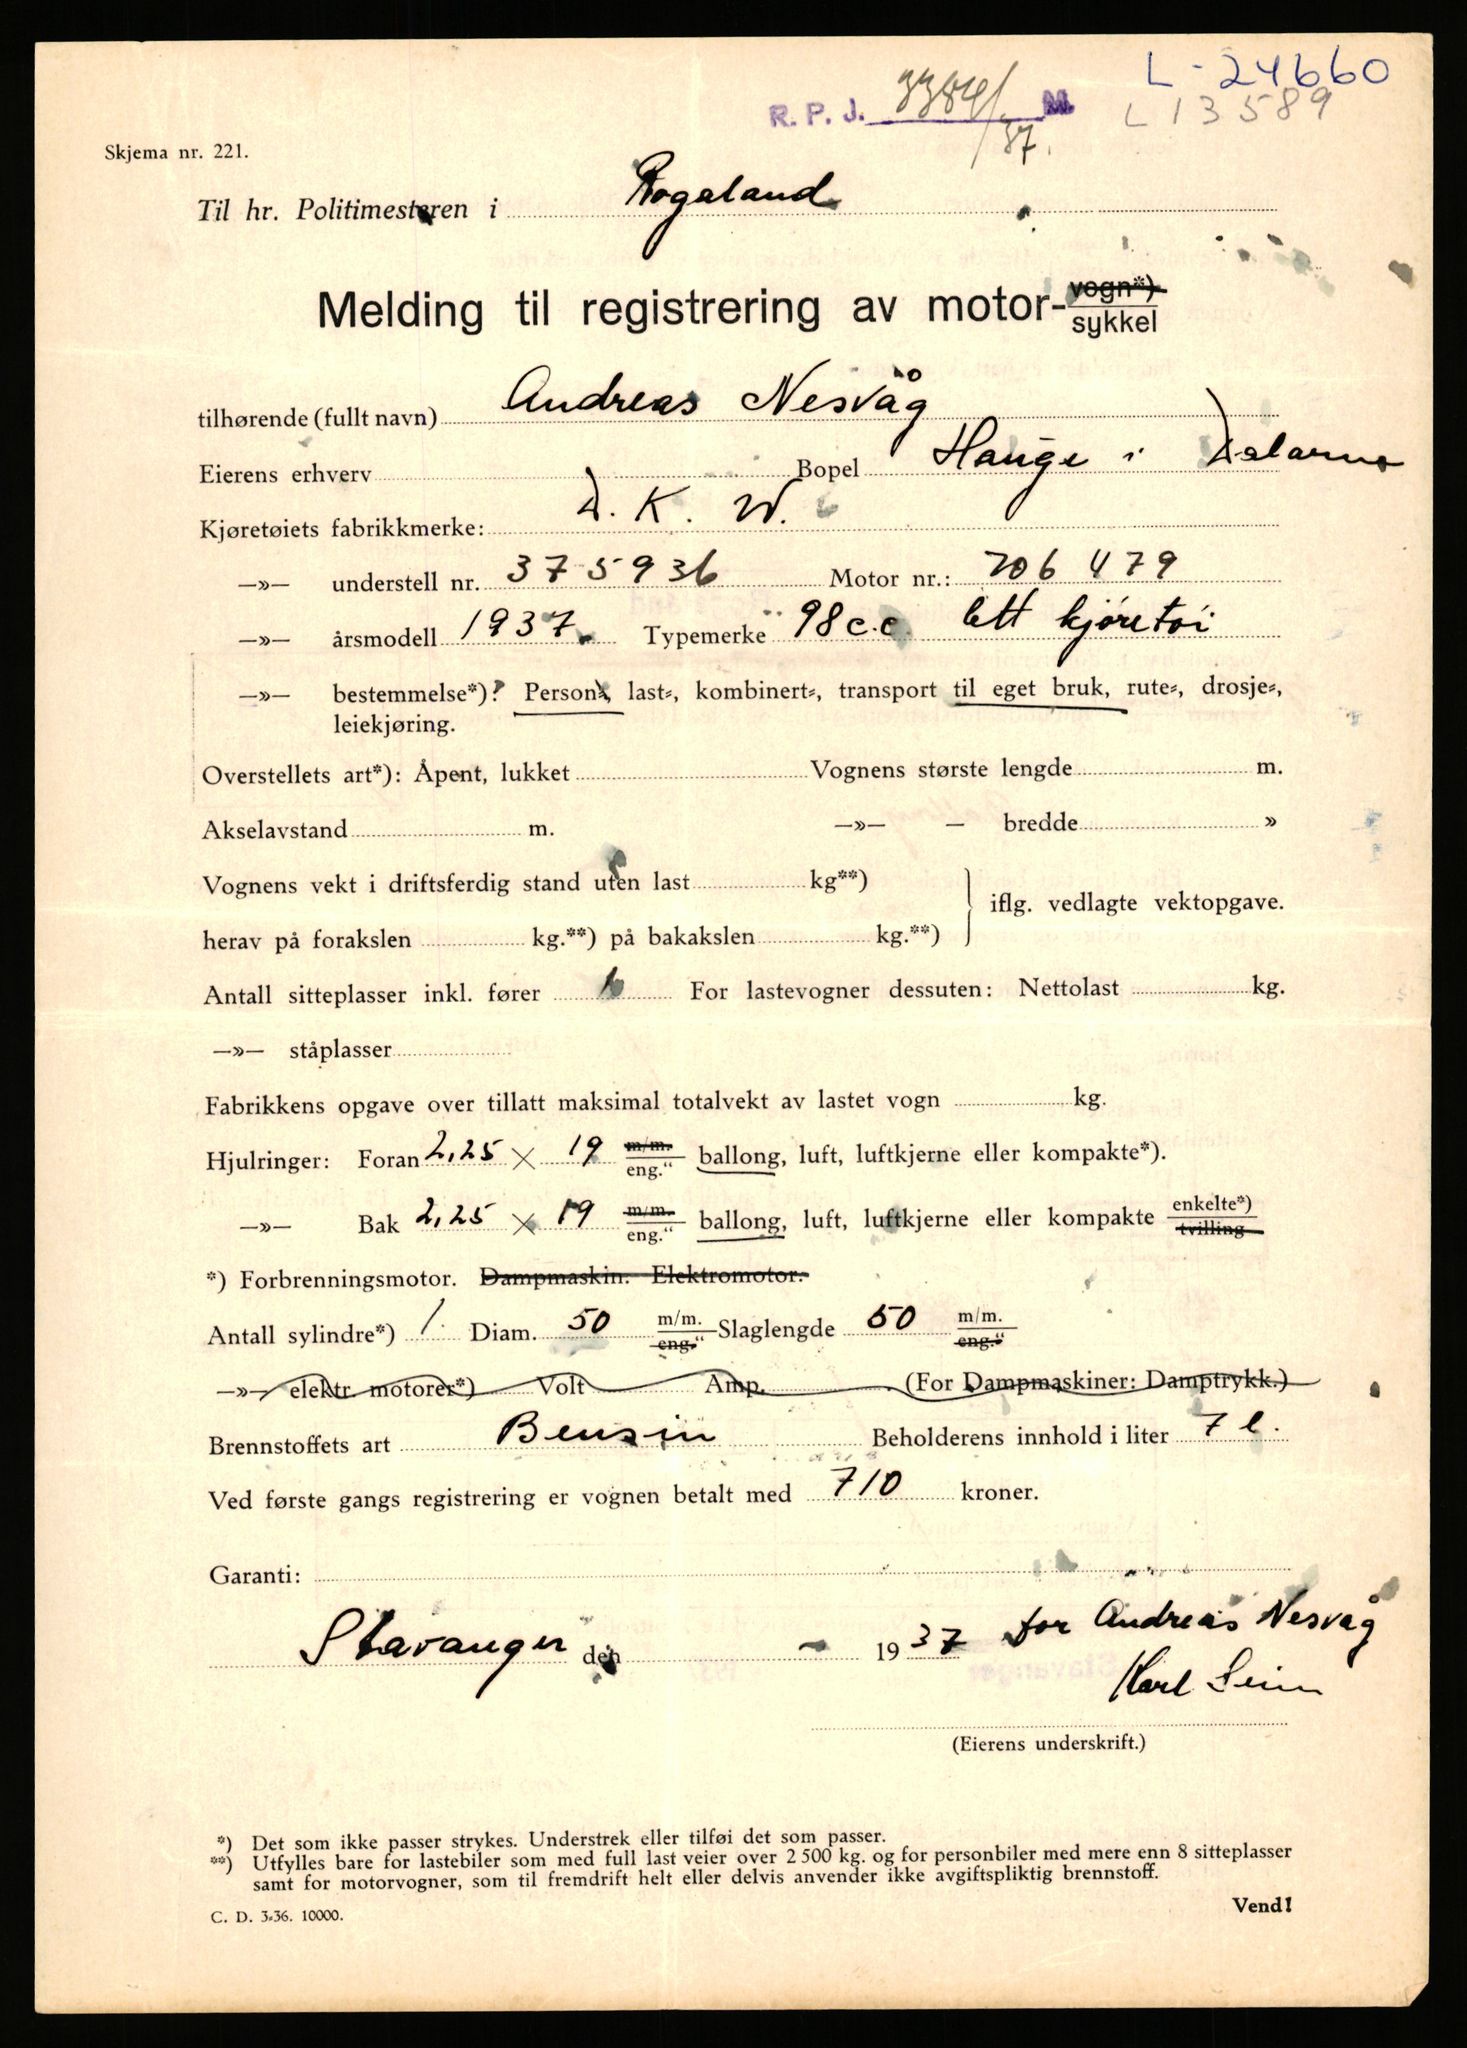 L-24660
R. P. J. 3384/37. M
L 13589
Skjema nr. 221.
Til hr. Politimesteren i Rogaland
Melding til registrering av motor-vogn*)
sykkel
tilhørende (fullt navn) Andreas Nesvåg
Eierens erhverv Bopel Hauge i Dalarne
Kjøretøiets fabrikkmerke: D. K. W.
—»— understell nr. 375936 Motor nr.: 706479
—»— årsmodell 1937. Typemerke 98 c.c. lett kjøretøi
—»— bestemmelse*)? Person-, last-, kombinert-, transport til eget bruk, rute-, drosje-,
leiekjøring.
Overstellets art*): Åpent, lukket Vognens største lengde m.
Akselavstand m. —»— — bredde »
Vognens vekt i driftsferdig stand uten last kg**)
iflg. vedlagte vektopgave.
herav på forakslen kg.**) på bakakslen kg.**)
Antall sitteplasser inkl. fører 1 For lastevogner dessuten: Nettolast kg.
—»— ståplasser
Fabrikkens opgave over tillatt maksimal totalvekt av lastet vogn kg.
Hjulringer: Foran 2,25 × 19 m/m. eng.“ ballong, luft, luftkjerne eller kompakte*).
—»— Bak 2,25 × 19 m/m. eng.“ ballong, luft, luftkjerne eller kompakte enkelte*) tvilling
*) Forbrenningsmotor. Dampmaskin. Elektromotor.
Antall sylindre*) 1. Diam. 50 m/m. eng.“ Slaglengde 50 m/m. eng.“
—»— elektr. motorer*) Volt Amp. (For Dampmaskiner: Damptrykk.)
Brennstoffets art Bensin Beholderens innhold i liter 7 l.
Ved første gangs registrering er vognen betalt med 710 kroner.
Garanti:
Stavanger den - 1937 for Andreas Nesvåg
Karl
(Eierens underskrift.)
*) Det som ikke passer strykes. Understrek eller tilføi det som passer.
**) Utfylles bare for lastebiler som med full last veier over 2 500 kg. og for personbiler med mere enn 8 sitteplasser
samt for motorvogner, som til fremdrift helt eller delvis anvender ikke avgiftspliktig brennstoff.
C. D. 3-36. 10000.
Vend!